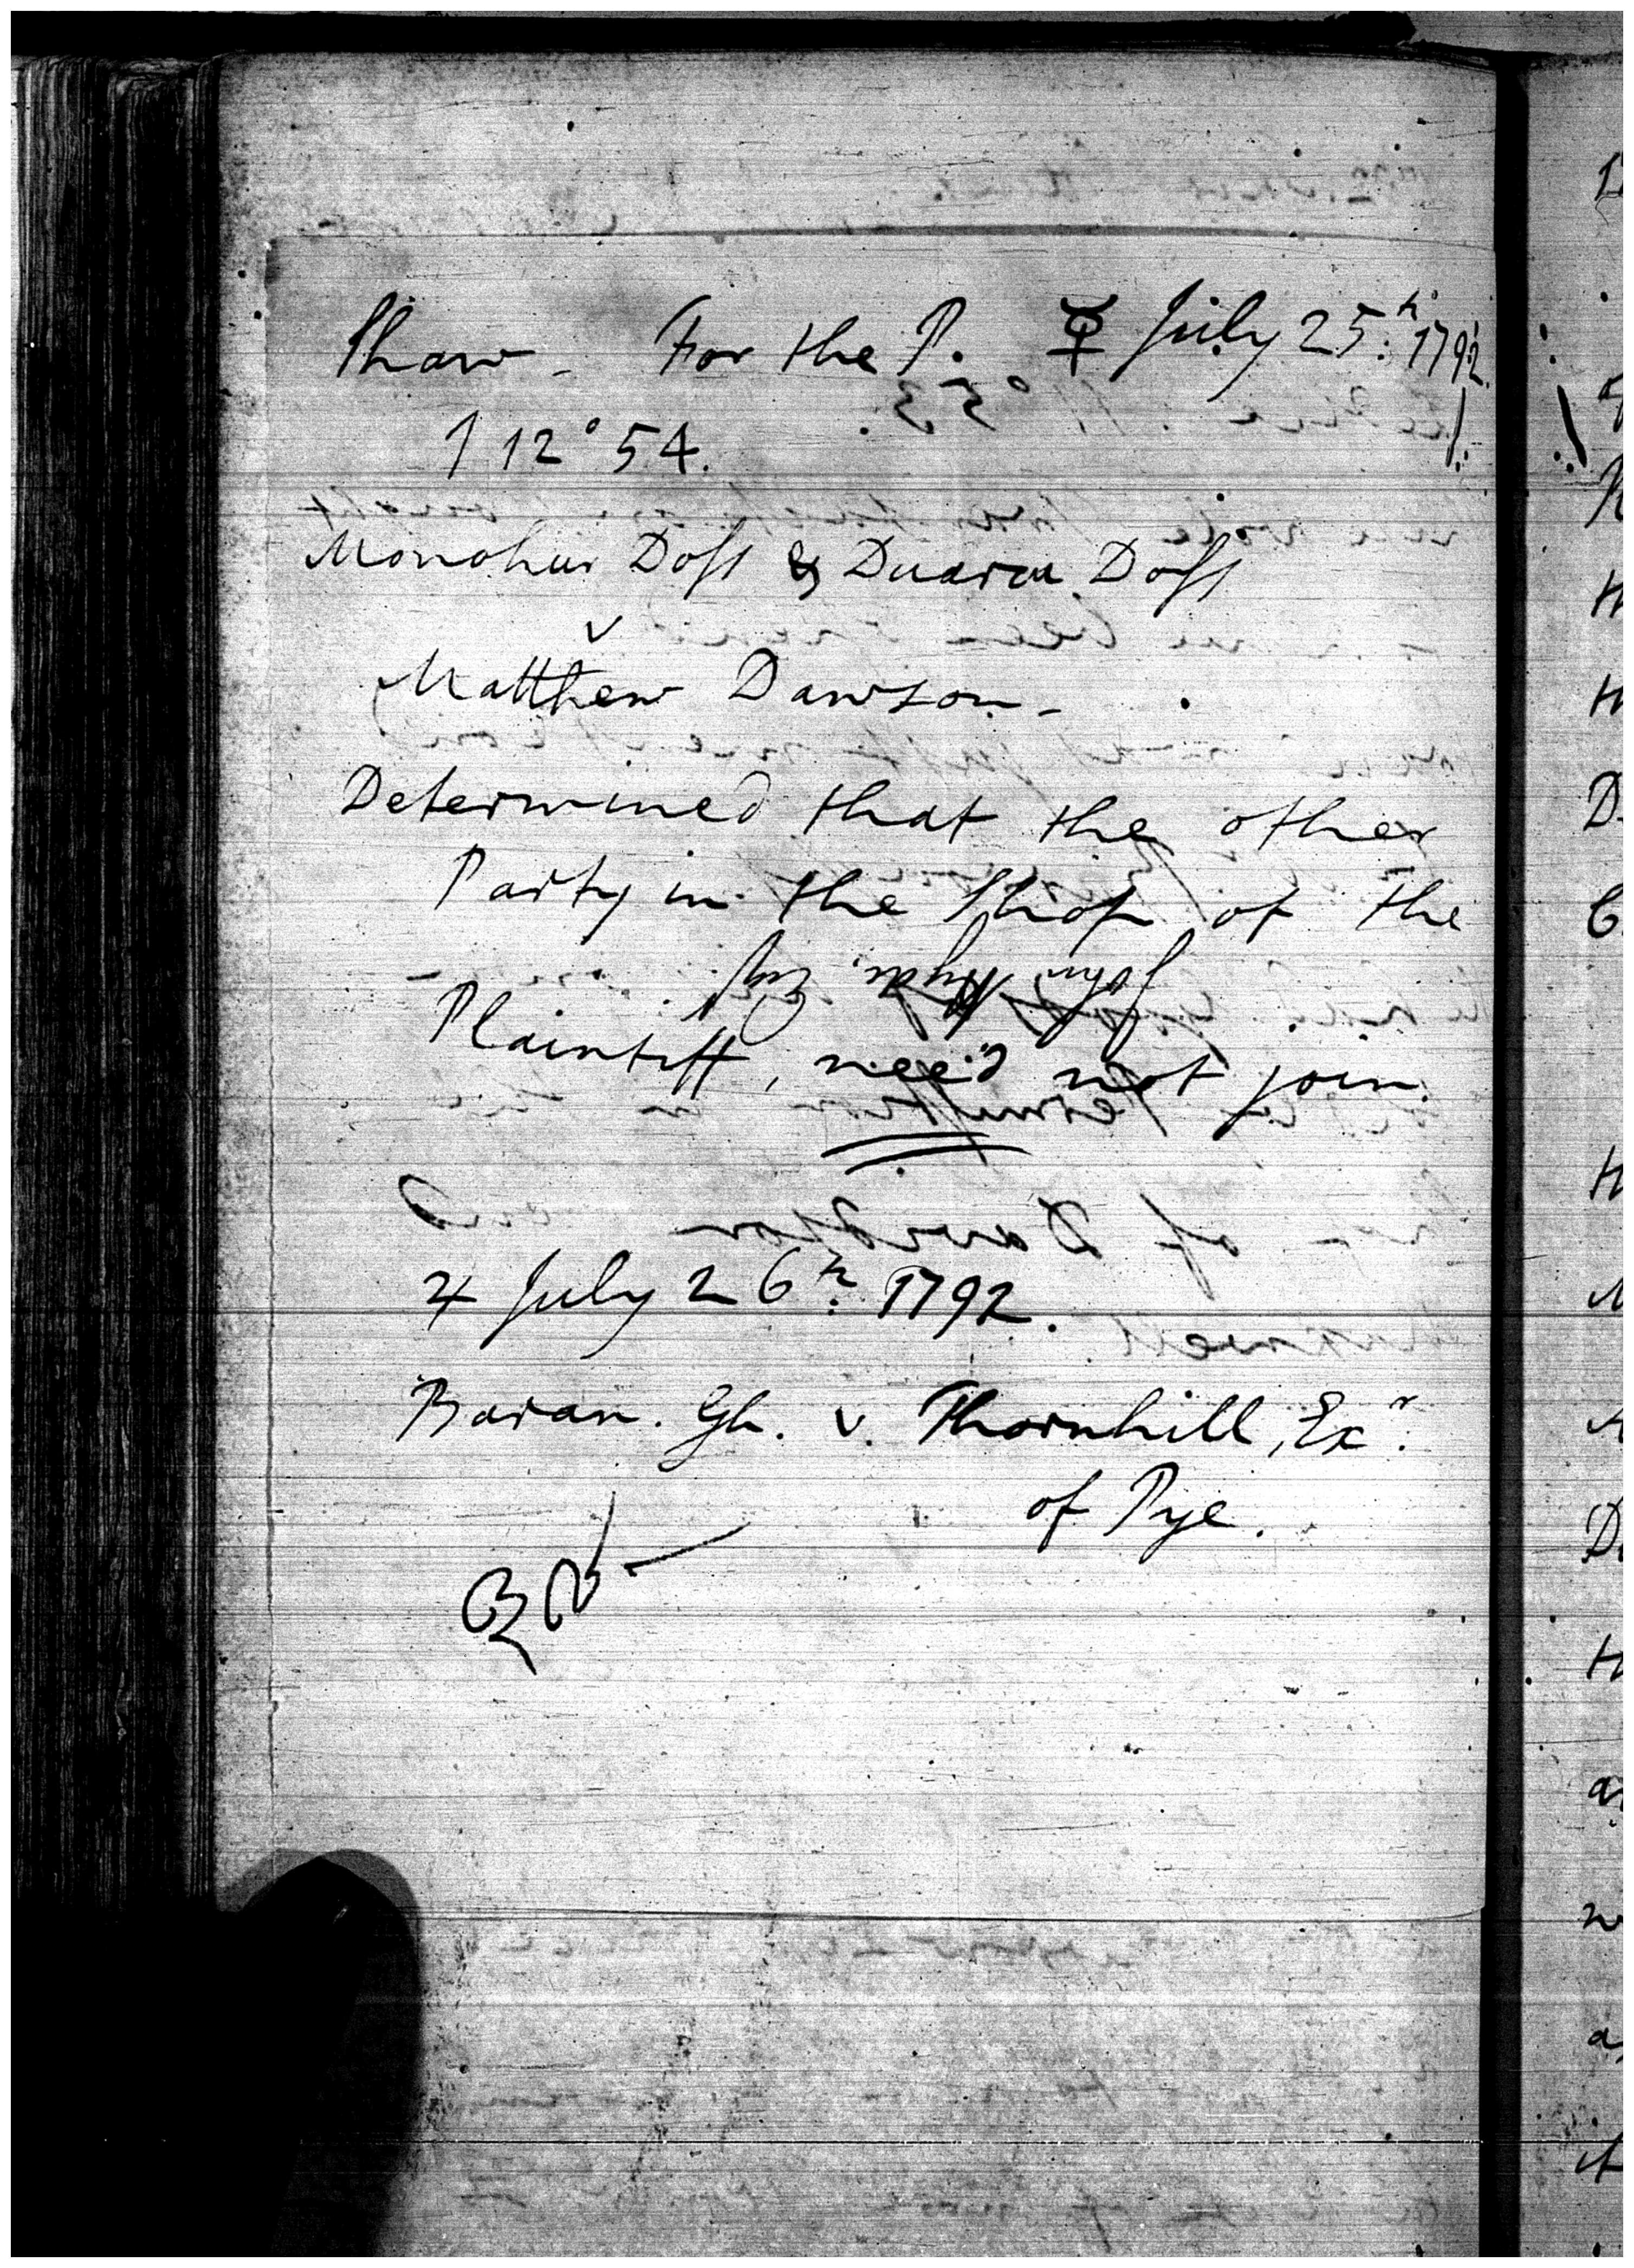 Shaw - For the P. ☿ July 25th: 1792.
1 12° 54.
Monohur Doss & Duarca Doss
v
Matthew Dawson -
Determined that the other
Party in the Shop of the
John Hyde. Esqr
Plaintiff, need not join.
♃ July 26th: 1792.
Baran. Gh. v. Thornhill, Exr:
of Pye.